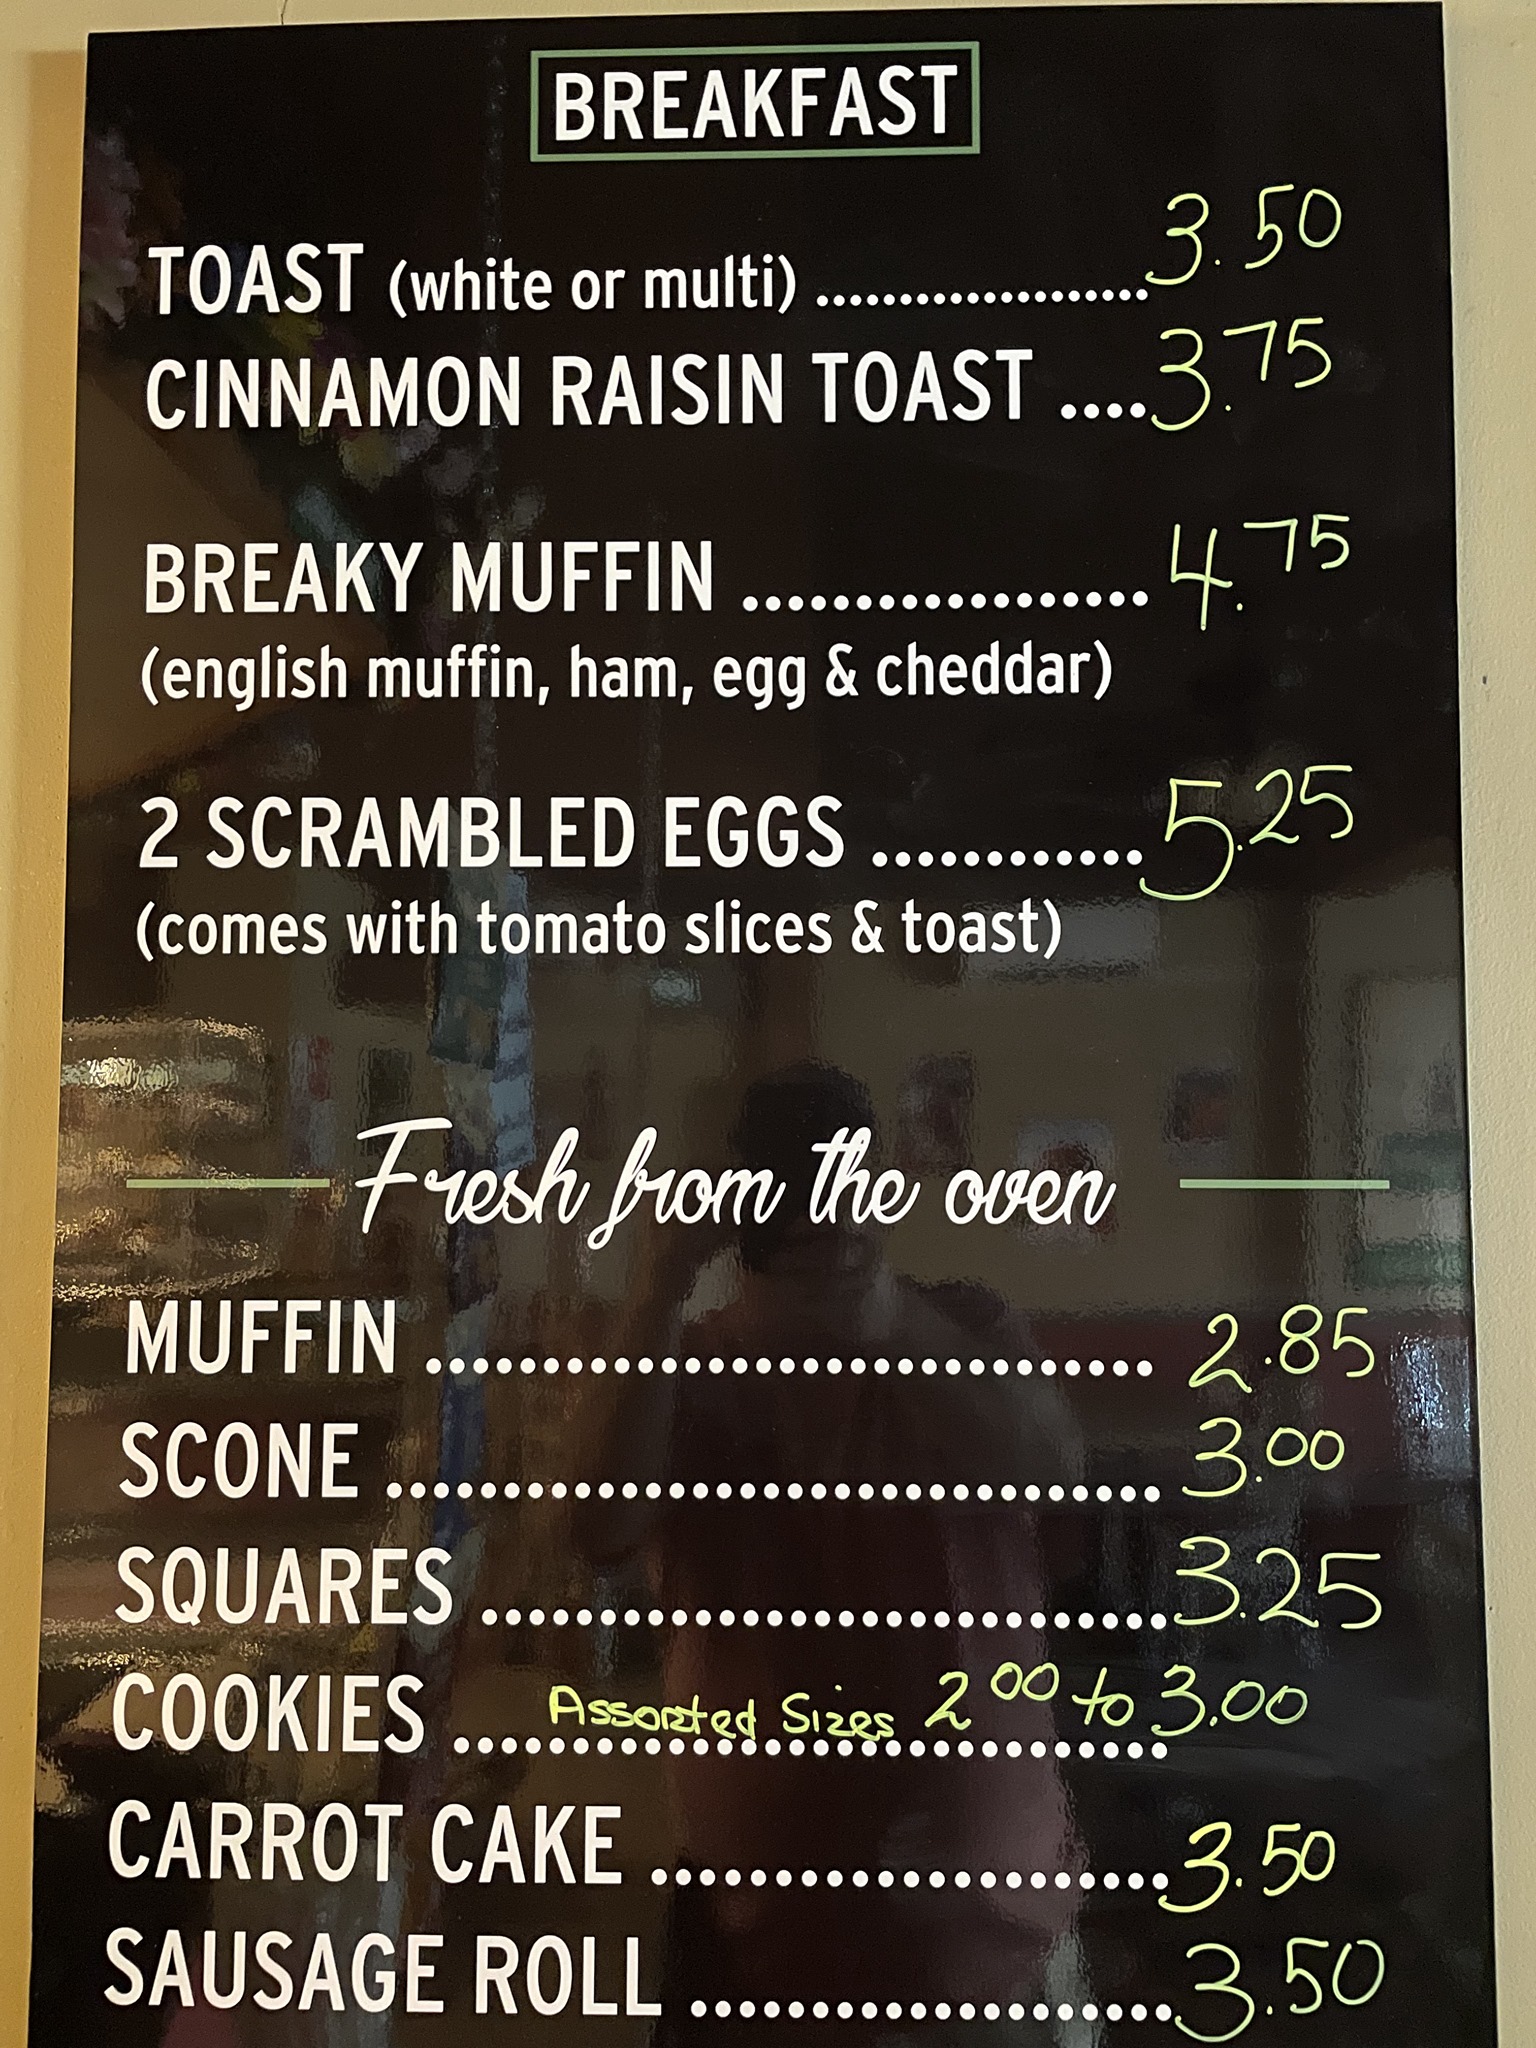 BREAKFAST
TOAST (white or multi) .................... 3.50
CINNAMON RAISIN TOAST .... 3.75
BREAKY MUFFIN ................ 4.75
(english muffin, ham, egg & cheddar)
2 SCRAMBLED EGGS ............ 5.25
(comes with tomato slices & toast)
Fresh from the oven
MUFFIN ............................... 2.85
SCONE ................................. 3.00
SQUARES ............................. 3.25
COOKIES .............................. Assorted Sizes 2.00 to 3.00
CARROT CAKE ...................... 3.50
SAUSAGE ROLL .................... 3.50